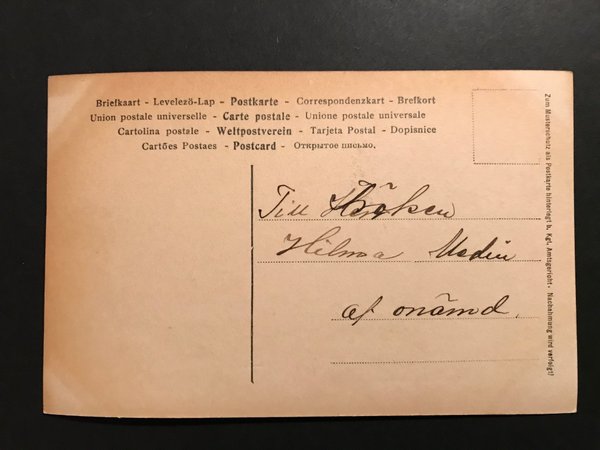 Briefkaart - Levelező-Lap - Postkarte - Correspondenzkart - Brefkort
Union postale universelle - Carte postale - Unione postale universale
Cartolina postale - Weltpostverein - Tarjeta Postal - Dopisnice
Cartões Postaes - Postcard - Открытое письмо.
Till Fröken
Hilma
af onämd.
Zum Musterschutz als Postkarte hinterlegt b. Kgl. Amtsgericht - Nachahmung wird verfolgt!